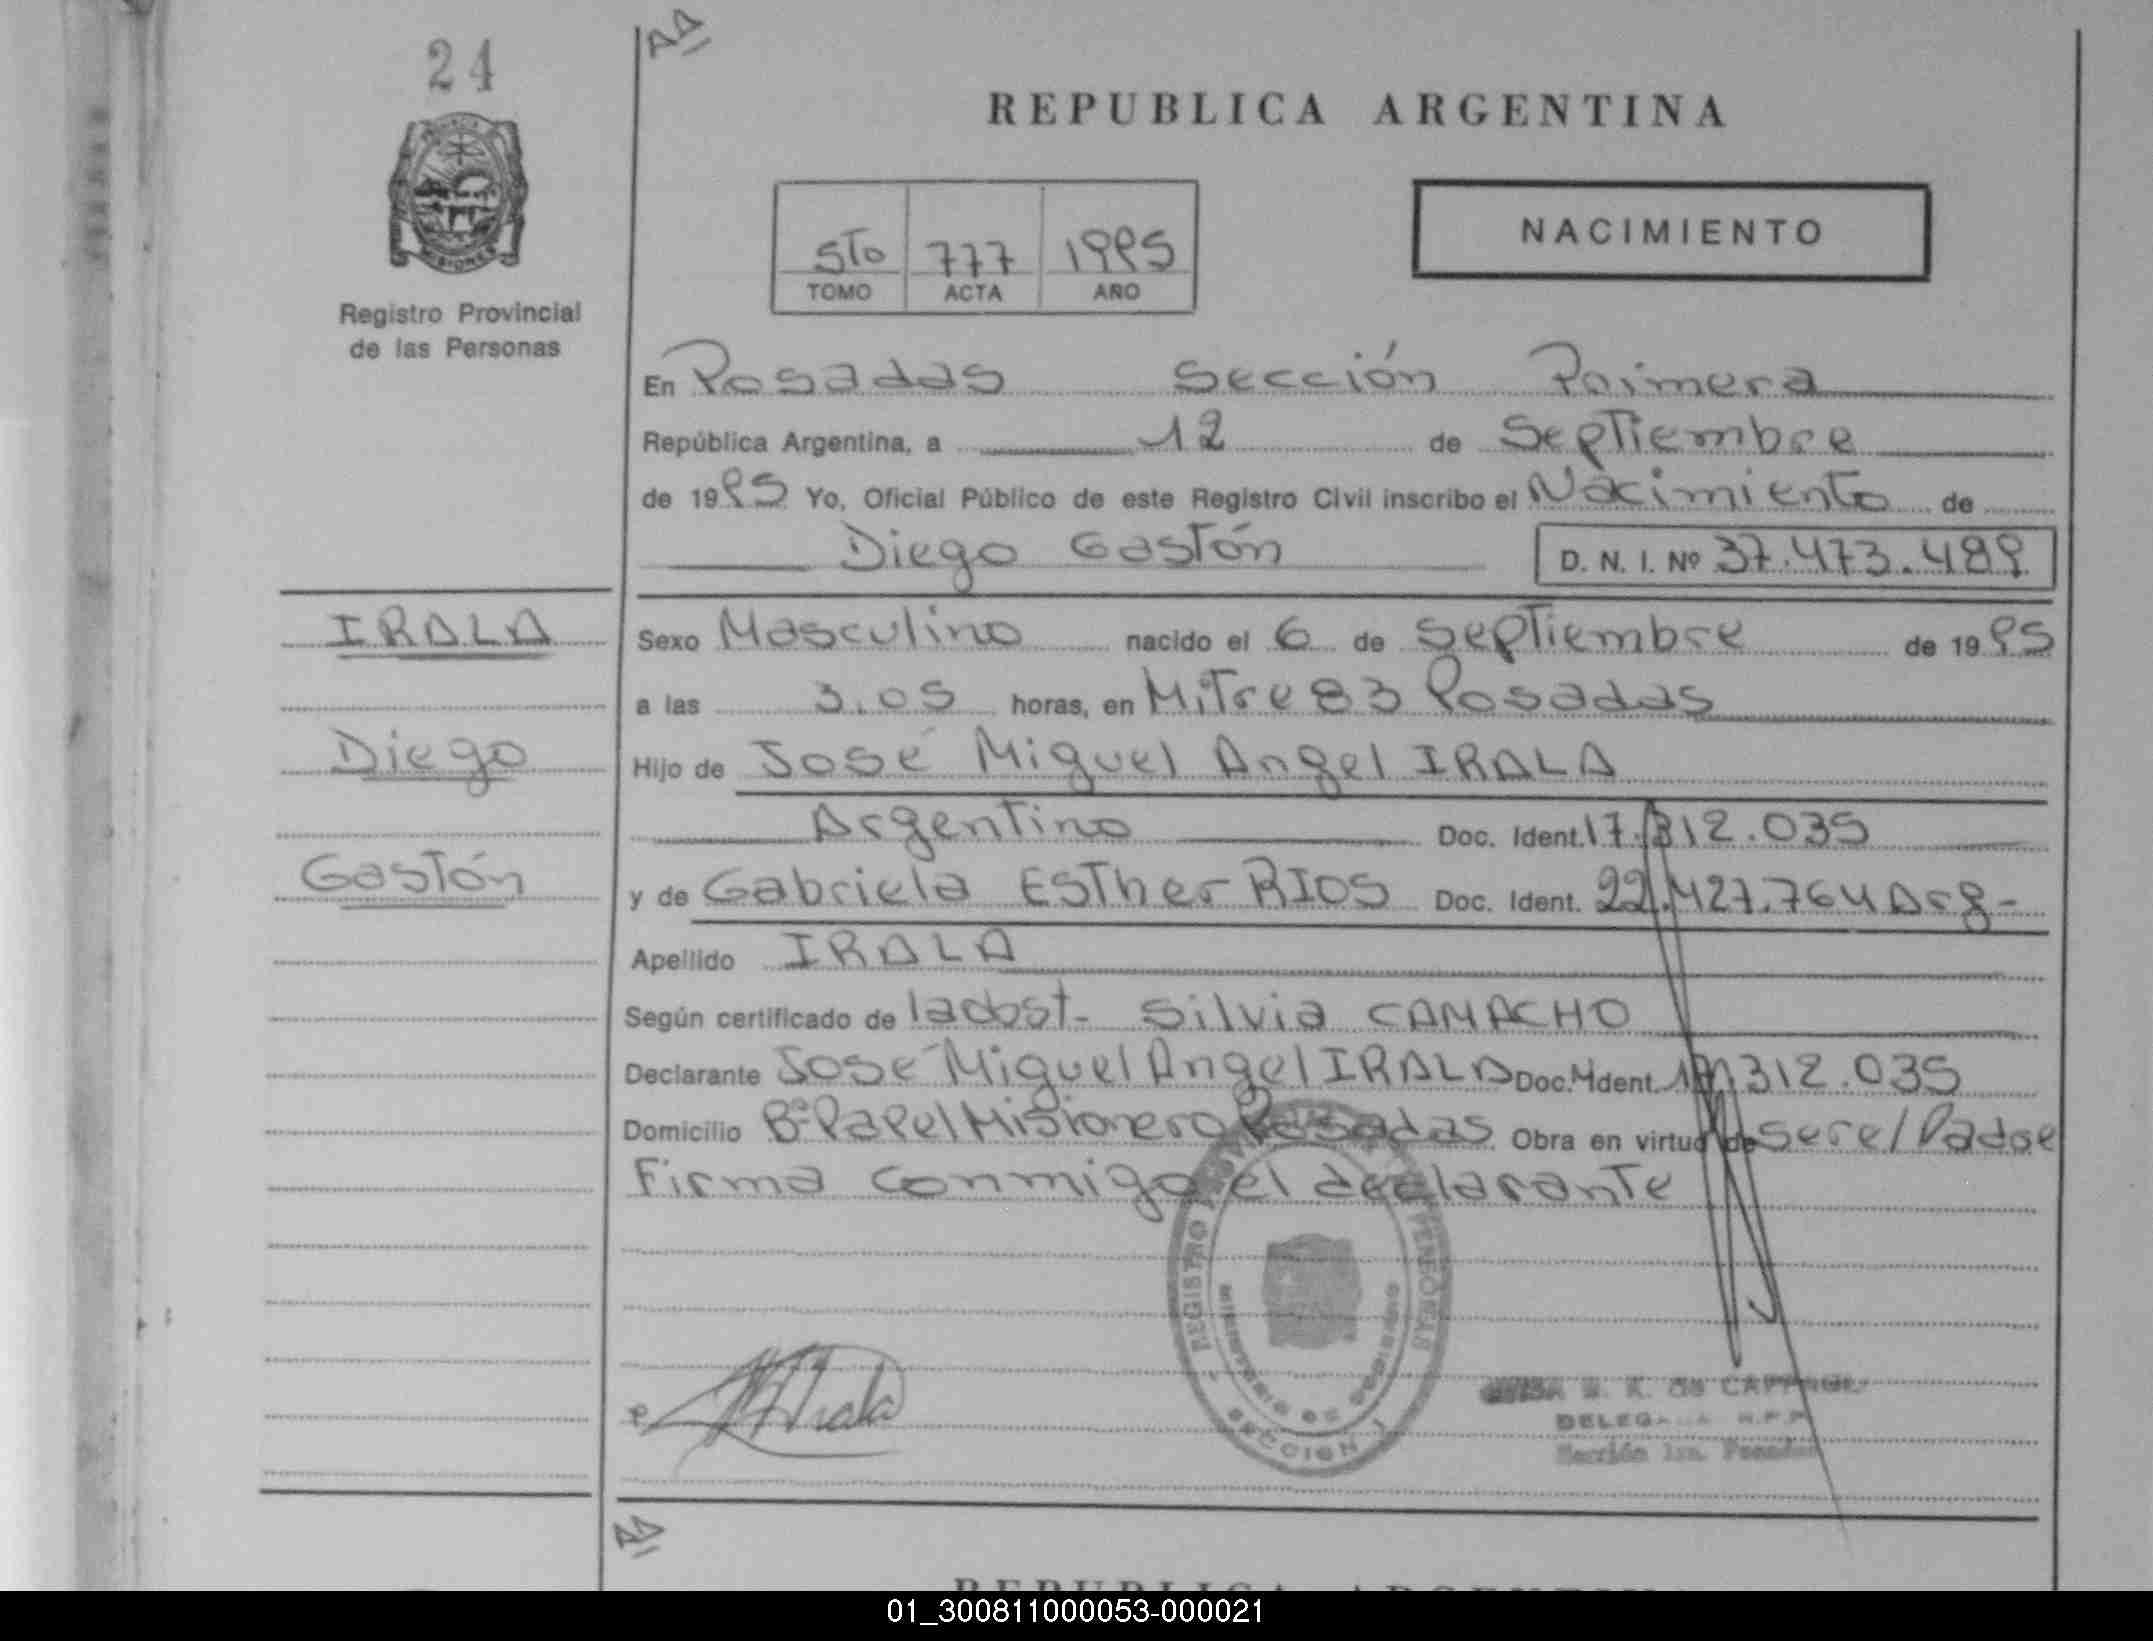 24
AA
REPUBLICA ARGENTINA
5To 777 1995
TOMO ACTA AÑO
NACIMIENTO
MISIONES
Registro Provincial
de las Personas
En Posadas Sección Primera
República Argentina, a 12 de Septiembre
de 1995 Yo, Oficial Público de este Registro Civil inscribo el Nacimiento de
Diego Gastón D. N. I. Nº 37.473.489
IRALA
Diego
Gastón
Sexo Masculino nacido el 6 de Septiembre de 1995
a las 3.05 horas, en Mitre 83 Posadas
Hijo de José Miguel Angel IRALA
Argentino Doc. Ident. 17.312.035
y de Gabriela Esther RIOS Doc. Ident. 22.427.764 Arg-
Apellido IRALA
Según certificado de la obst- Silvia CAMACHO
Declarante José Miguel Angel IRALA Doc. Ident. 17.312.035
Domicilio Bº Papel Misionero Posadas Obra en virtud de ser el Padre
Firma conmigo el declarante
REGISTRO PERSONAS
MINISTERIO DE GOBIERNO
SECCION 1
Irala
de
DELEGADA R.P.P.
Sección 1ra. Posadas
AA
REPUBLICA ARGENTINA
01_300811000053-000021